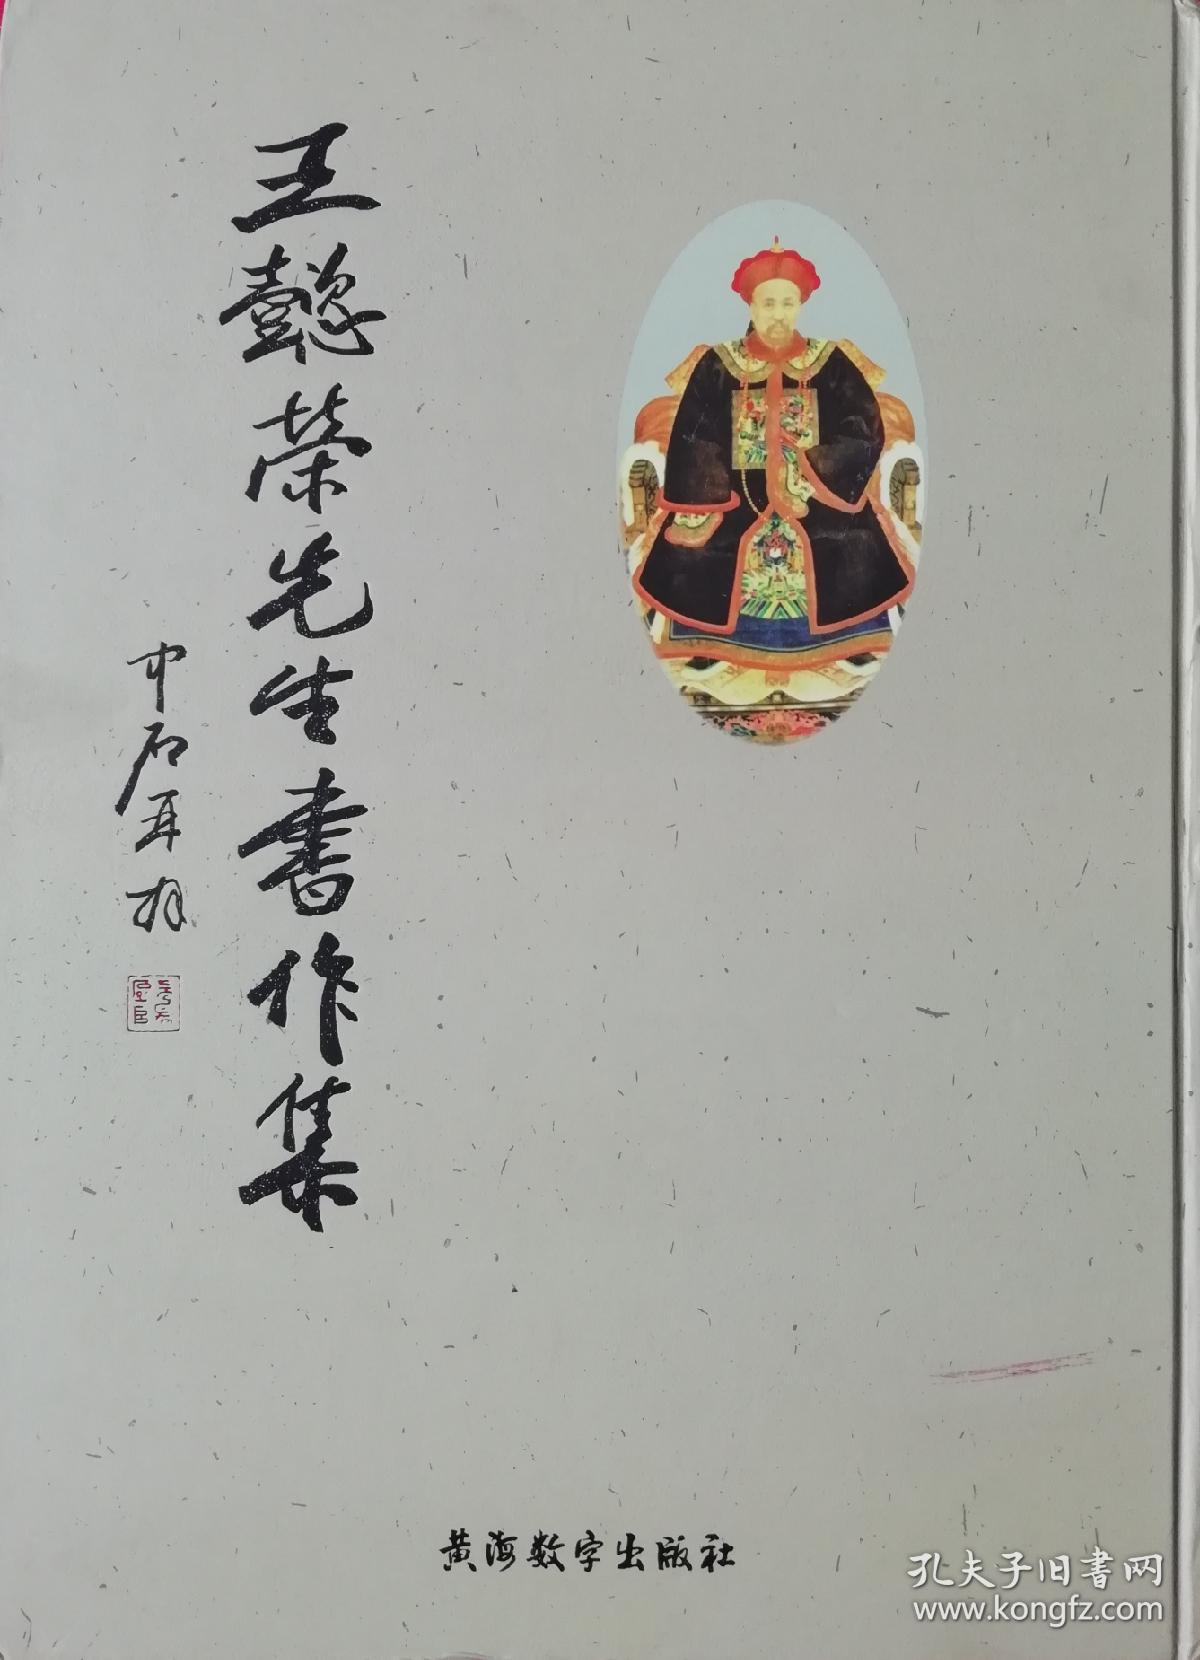 王懿荣先生書作集
中石再拜
黄海数字出版社
孔夫子旧書网
www.kongfz.com